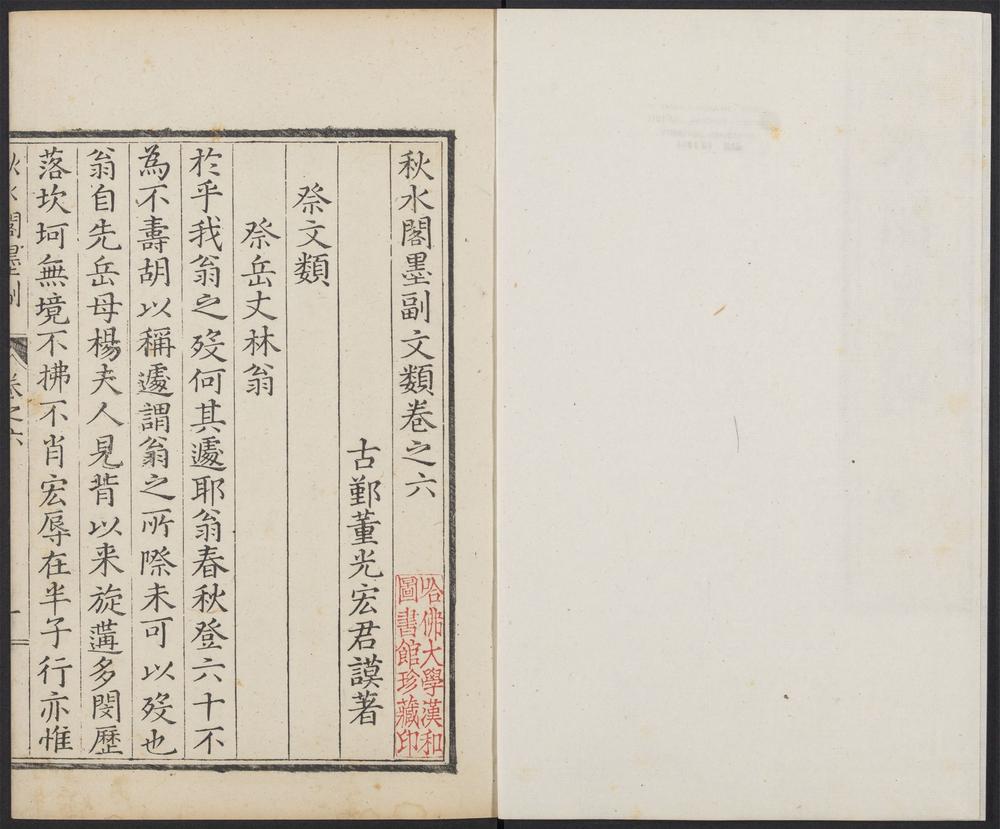 秋水閣墨副文類卷之六
古鄞董光宏君謨著
祭文類
祭岳丈林翁
於乎我翁之歿何其遽耶翁春秋登六十不
為不壽胡以稱遽謂翁之所際未可以歿也
翁自先岳母楊夫人見背以来旋遘多閔歷
落坎坷無境不拂不肖宏辱在半子行亦惟
秋水閣墨副
卷之六
一
哈佛大學漢和
圖書館珍藏印